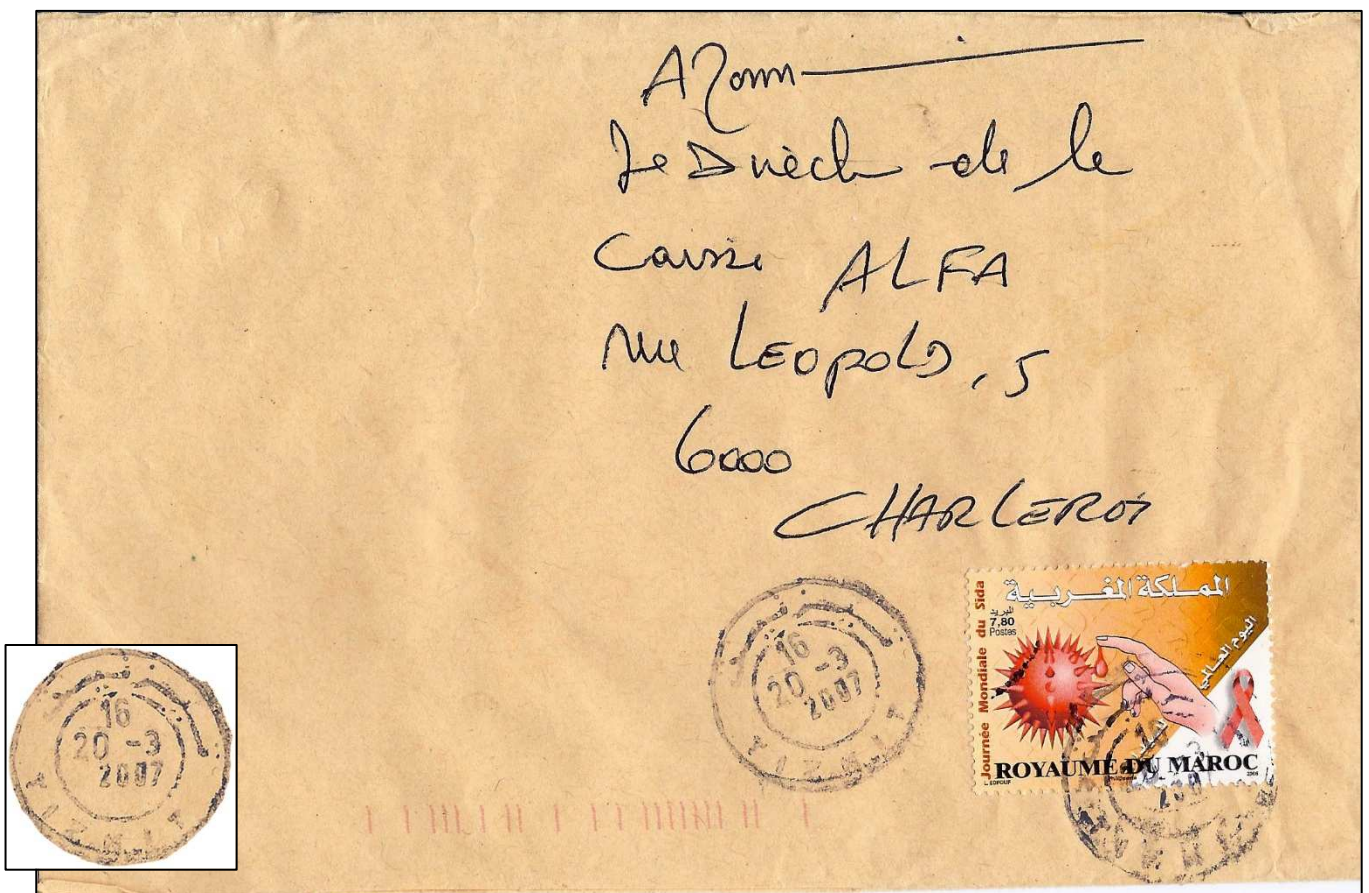 A Monsi
Le Directeur de la
Caisse ALFA
rue LEOPOLD, 5
6000
CHARLEROY
المملكة المغربية
البريد
7,80
Postes
Journée Mondiale du Sida
اليوم العالمي
ROYAUME DU MAROC
2006
16
20 -3
2007
16
20 -3
2007